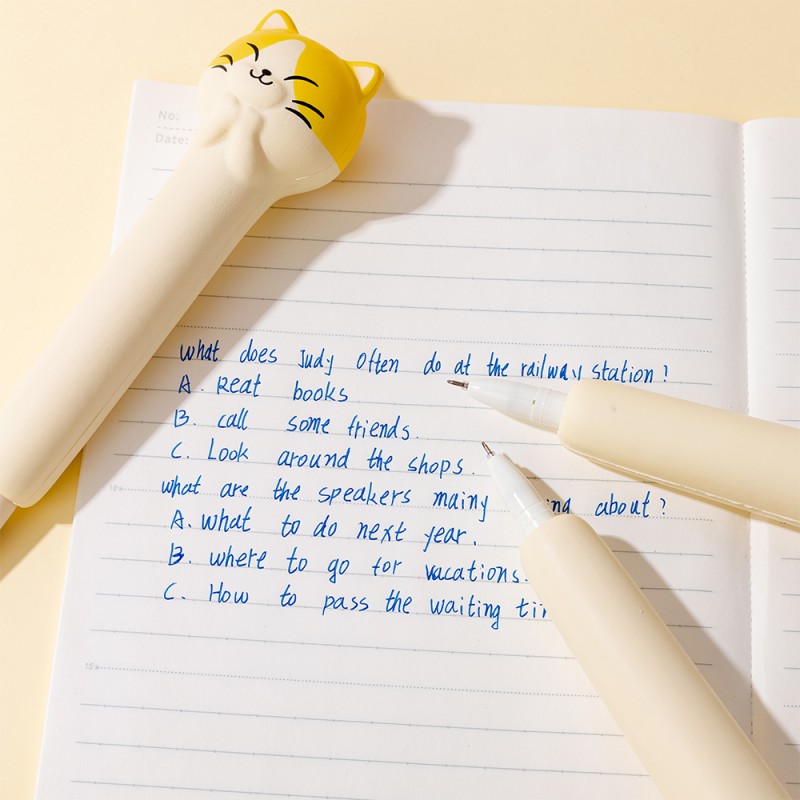 No:
Date:
What does Judy Often do at the railway station?
A. Reat books
B. call some friends.
C. Look around the shops.
10
what are the speakers mainy about?
A. what to do next year.
B. where to go for vacations.
C. How to pass the waiting
15